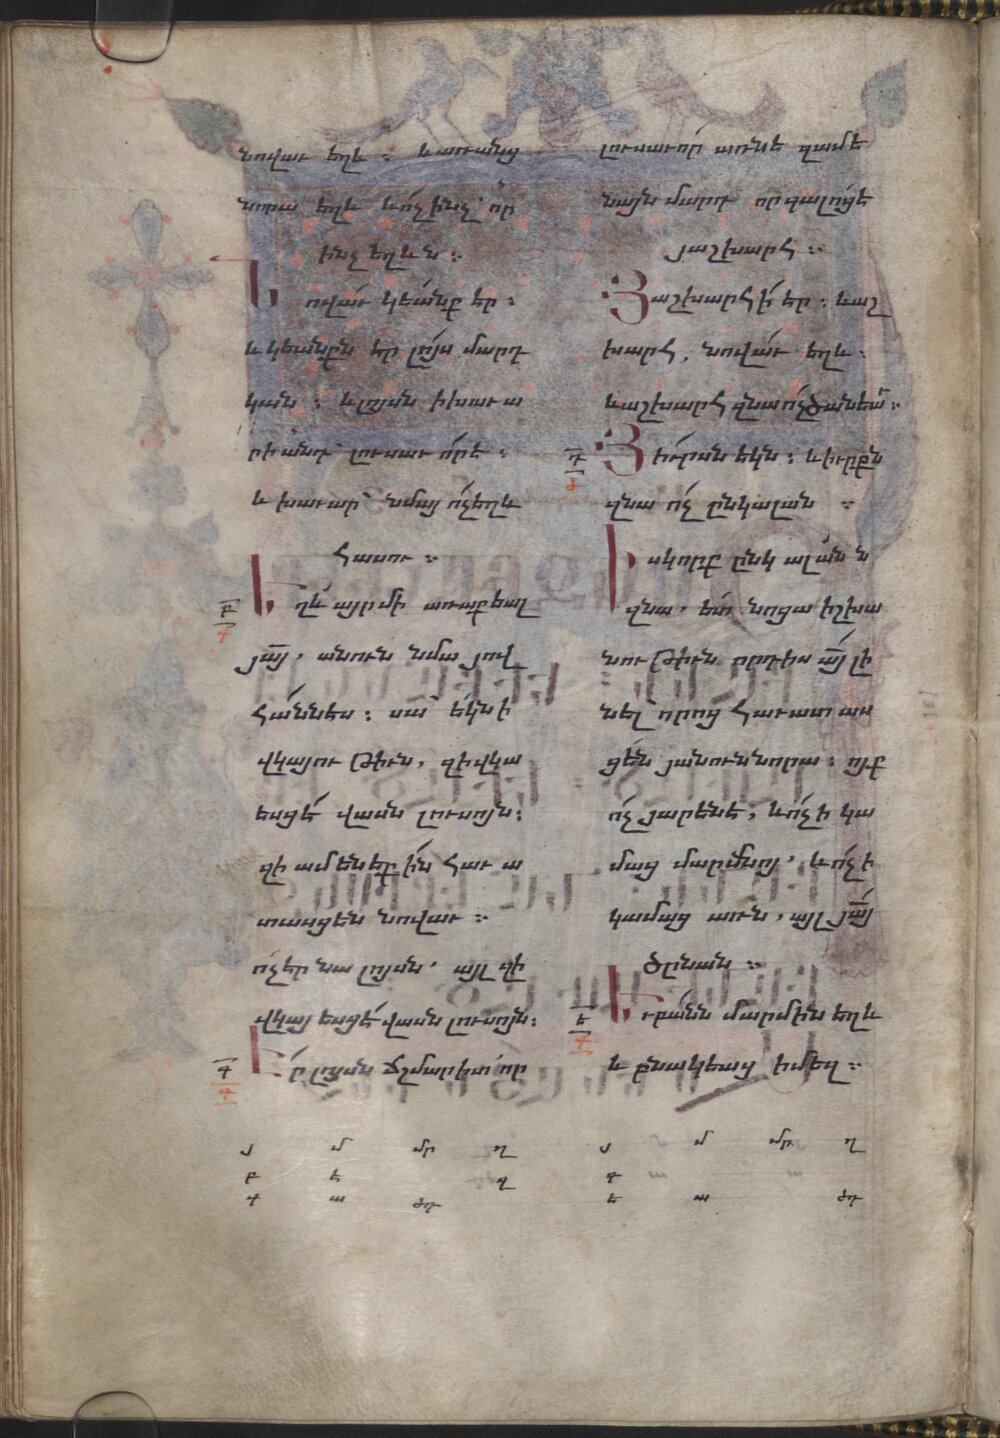 նովաւ եղև ։ և առանց
նորա եղև և ոչ ինչ՝ որ
ինչ եղևն ։
Նովաւ կեանք եր ։
և կեանքն եր լոյս մարդ
կան ։ և լոյսն ի խաւա
րի անդ՝ լուսաւորէ ։
և խաւար՝ նմայ ոչ եղև
հասու ։
Եղև այր մի առաքեալ
յայ՟, անուն նմա յով
հաննես ։ սա՝ եկն ի
վկայութիւն, զի վկա
եսցէ վասն լուսոյն ։
զի ամենեքին հաւա
տասցեն նովաւ ։
ոչ եր նա լոյսն, այլ զի
վկայեսցէ վասն լուսոյն ։
Եր լոյսն ճշմարիտ՝ որ
լուսաւոր առնե զամե
նայն մարդ որ գալոցէ
յաշխարհ ։
Յաշխարհի եր ։ և աշ
խարհ, նովաւ եղև ։
և աշխարհ զնա ոչ ծանեաւ ։
Յիւրսն եկն ։ և իւրքն
զնա ոչ ընկալան ։
Իսկ որք ընկալանն
զնա, ետ նոցա իշխա
նութիւն որդիս այ՟ լի
նել՝ որոց հաւատաս
ցեն յանուն նորա ։ ոյք
ոչ յարենե, և ոչ ի կա
մաց մարմնոյ, և ոչ ի
կամաց առն, այլ յայ՟
ծընան ։
Եւ բանն մարմին եղև
և բնակեաց ի մեզ ։
բ
գ
դ
ե
յ մ մր ղ
բ ե զ
գ ա ժդ
յ մ մր ղ
դ
ե ա ժդ